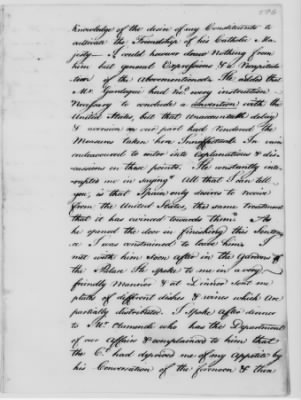 Knowledge of the desire of my Constituents to
cultivate the Friendship of his Catholic Ma-
jesty— I could however draw Nothing from
him but general Expressions & a Recapitula-
tion of the Abovementioned. He added that
Mr. Gardoqui had recd. every instruction
Necessary to conclude a convention with the
United States, but that Unaccountable delay
& aversion on our part had rendered the
Measures taken here Ineffectual. In vain
endeavoured to enter into Explanations & dis-
cussions on these points. He constantly inter-
rupted me in saying All that I can tell
you, is that Spain only desires to receive
from the United States, the same treatment
that it has evinced towards them. As
he opened the door in finishing this Senten-
ce I was constrained to leave him. I
met with him soon after in the Gardens of
the Palace He spoke to me in a very
friendly Manner & at Dinner sent me
plates of different dishes & wines which are
partially distributed. I spoke after dinner
to Mr. Otamendi who has the Department
of our Affairs & complained to him that
the Ct. had deprived me of my Appetite by
his Conversation of the forenoon & then